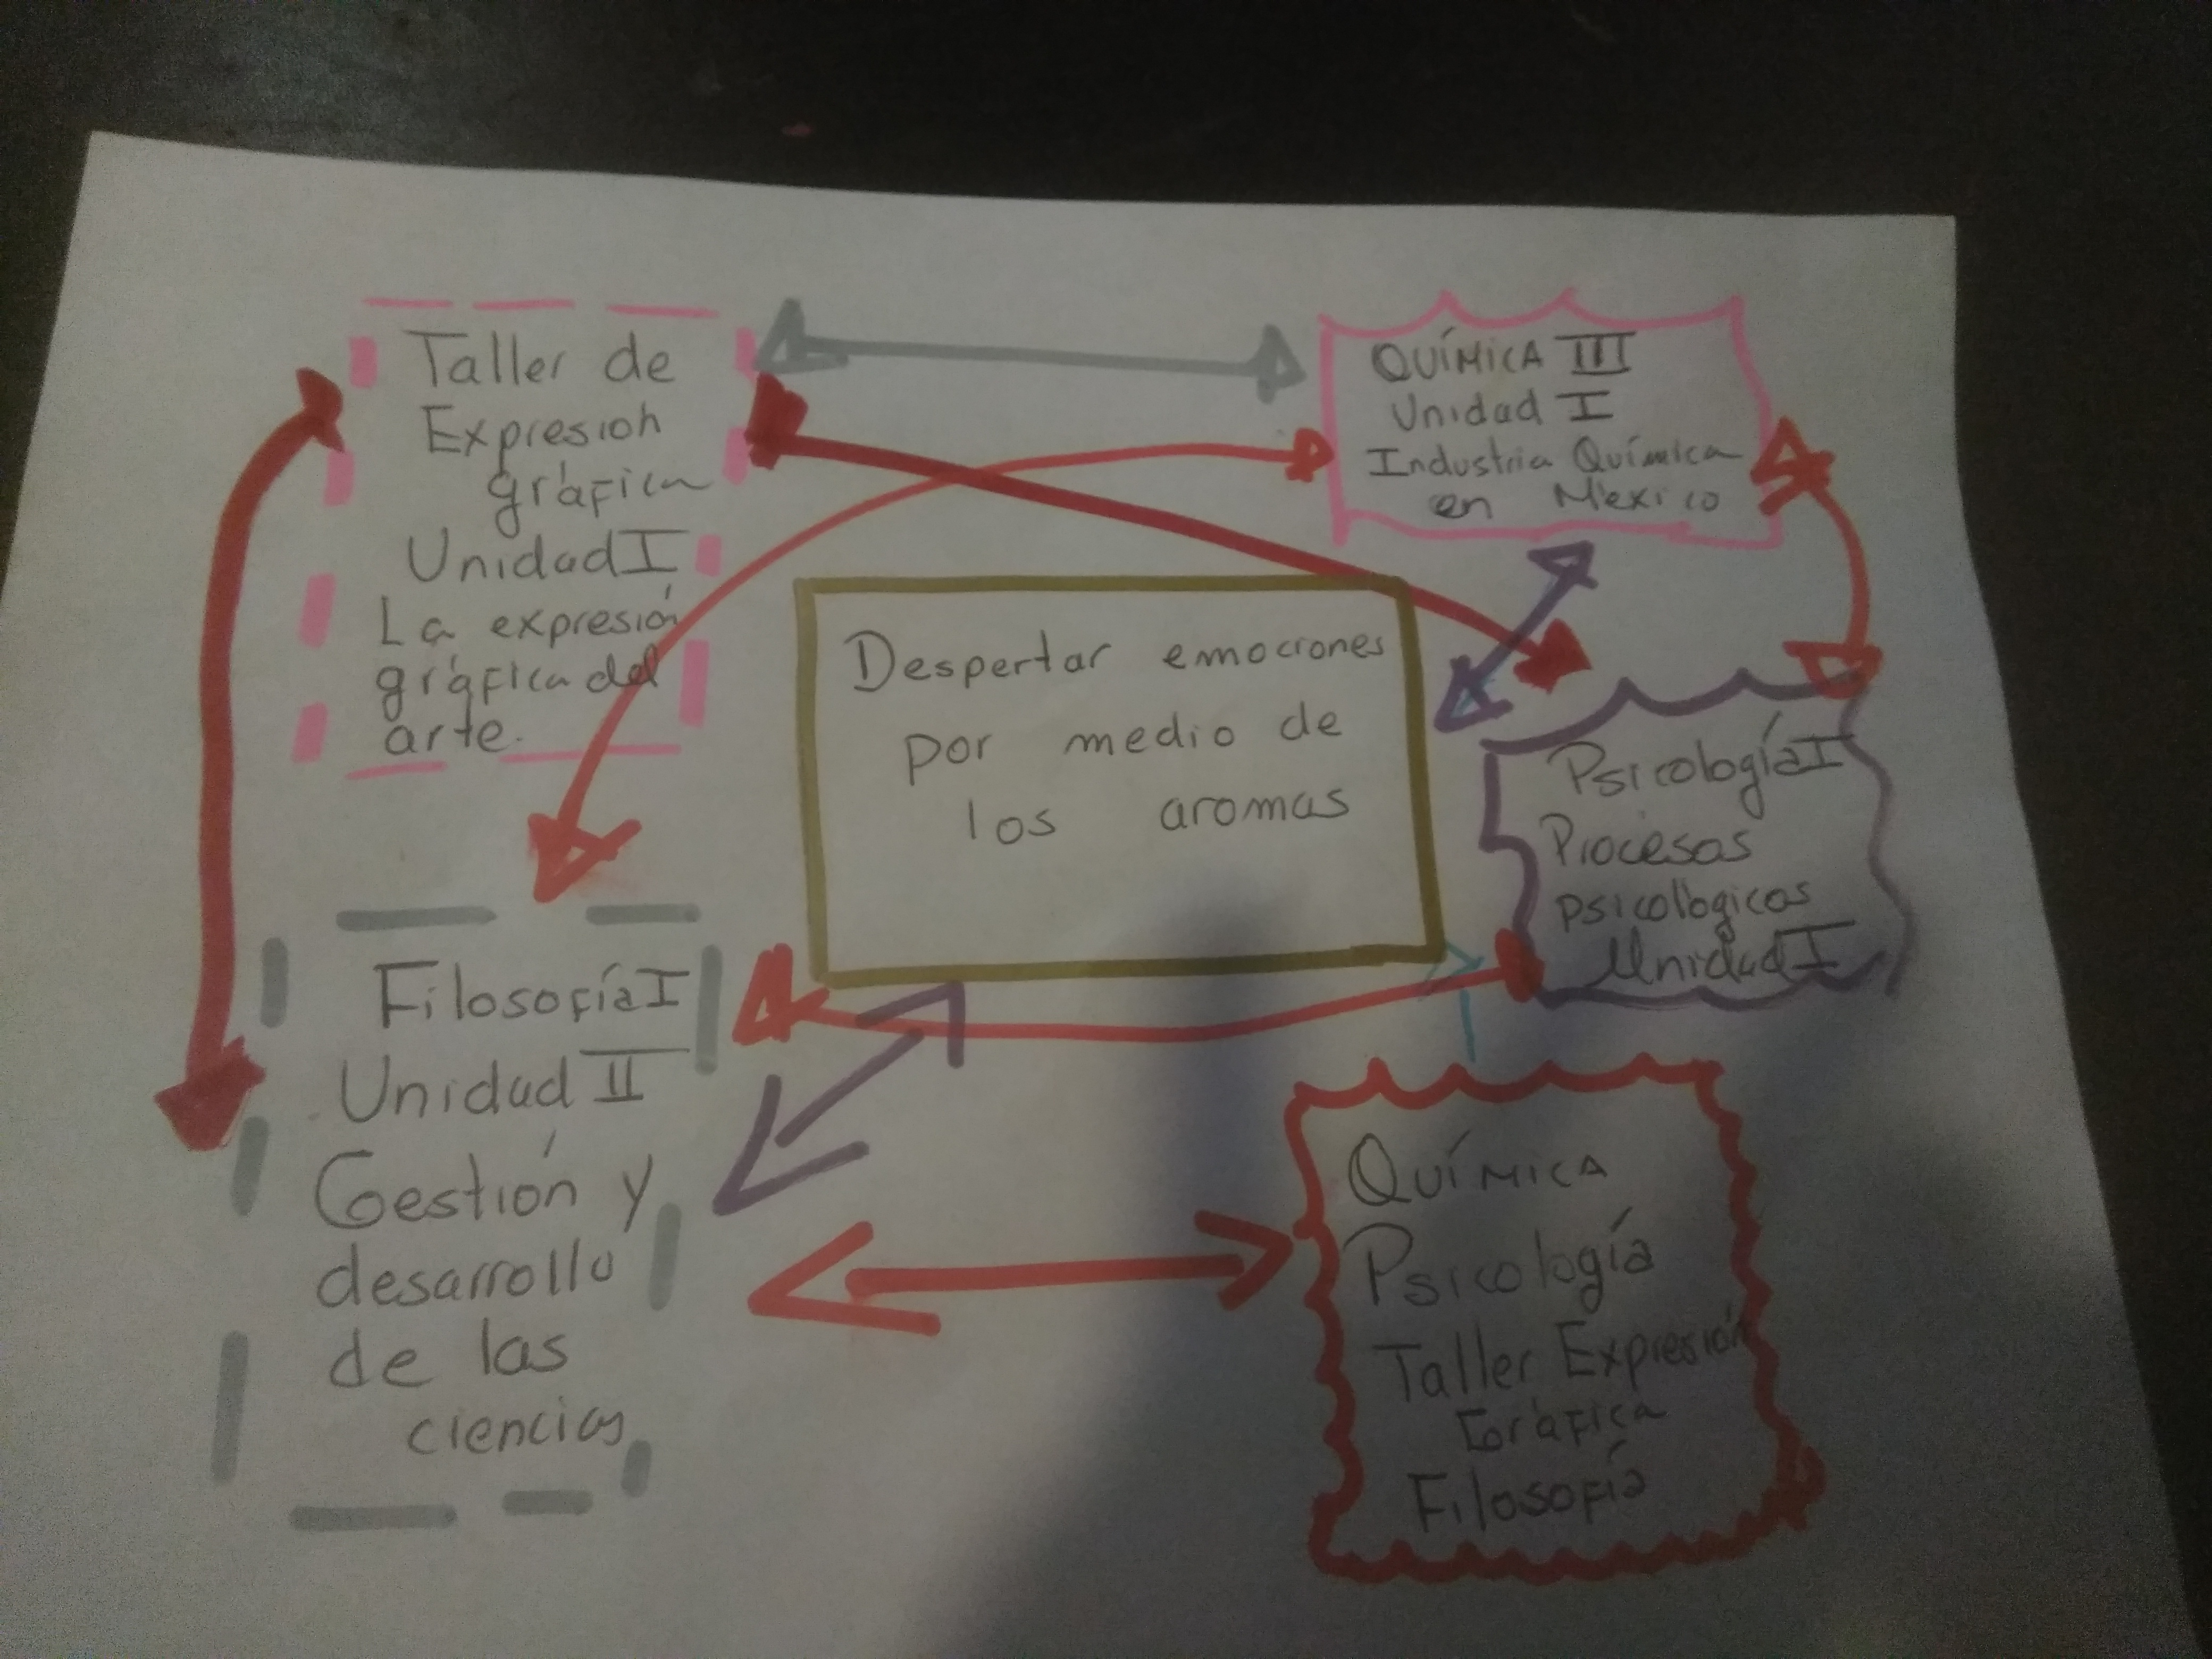 Taller de
Expresion
gráfica
Unidad I
La expresión
gráfica del
arte.
QUÍMICA III
Unidad I
Industria Química
en México
Despertar emociones
por medio de
los aromas
Psicología I
Procesos
psicológicos
Unidad I
Filosofía I
Unidad II
Gestión y
desarrollo
de las
ciencias
QUÍMICA
Psicología
Taller Expresión
Gráfica
Filosofía